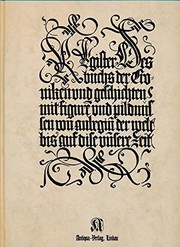 Register Des
buchs der Cro-
niken und geschichten
mit figuren und pildnus-
sen von anbeginn der welt
bis auf dise unsere Zeit
Antiqua-Verlag, Lindau